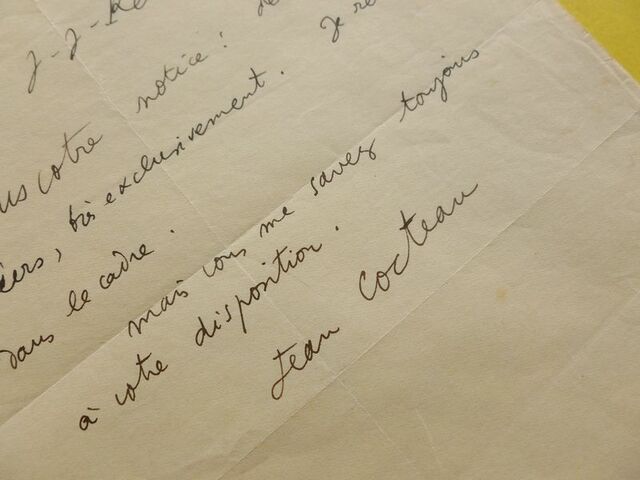 J-J-
votre notice : 
très exclusivement. Je
dans le cadre.
mais vous me savez toujours
à votre disposition.
Jean Cocteau